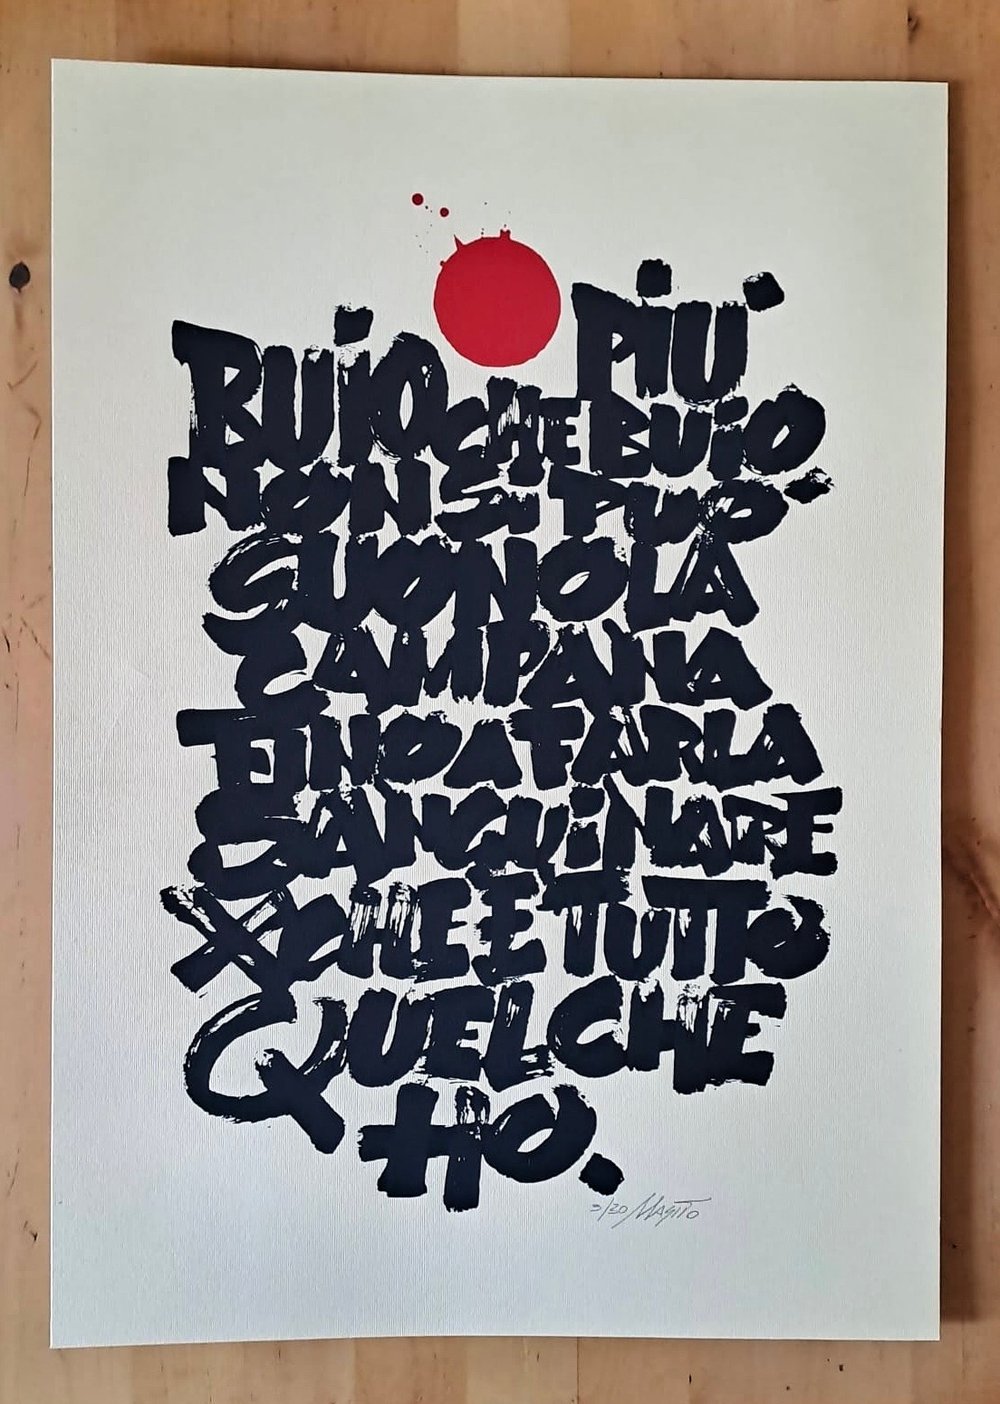 BUiO PIÙ
CHE BUiO
NON SI PUÒ
SUONO LA
CAMPANA
FINO A FARLA
SANGUiNARE
XCHE E TUTTO
QUEL CHE
HO.
3/30 MAGITO